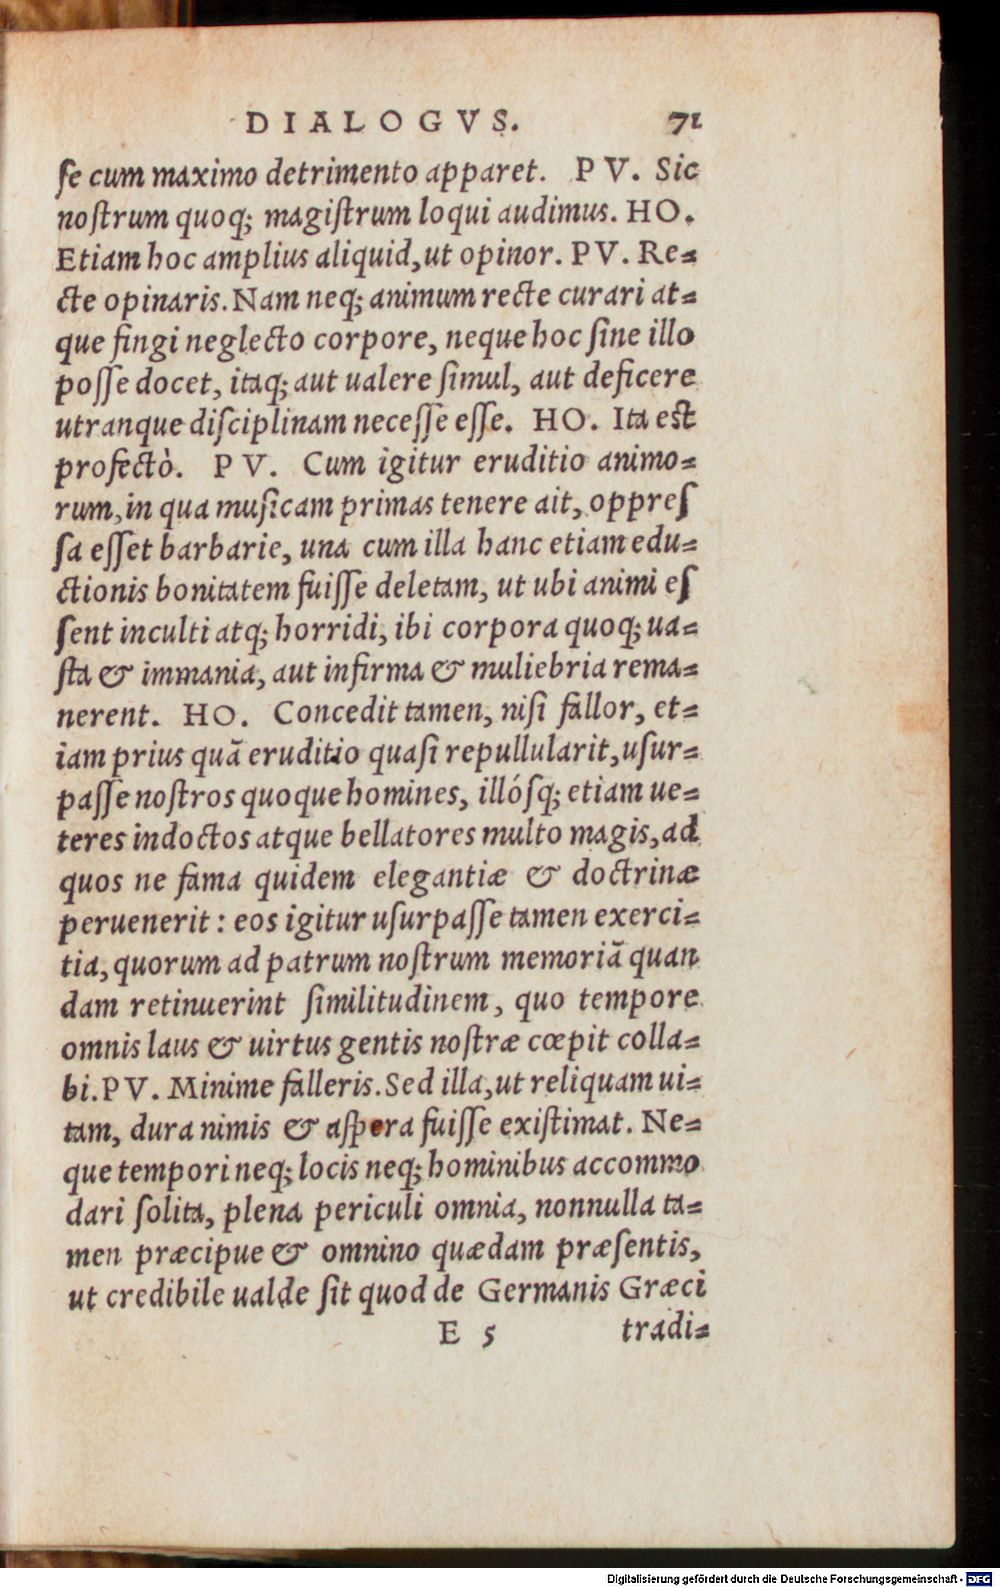 DIALOGVS. 71
ſe cum maximo detrimento apparet. PV. Sic
noſtrum quoq; magiſtrum loqui audimus. HO.
Etiam hoc amplius aliquid, ut opinor. PV. Re=
cte opinaris. Nam neq; animum recte curari at=
que fingi neglecto corpore, neque hoc ſine illo
poſſe docet, itaq; aut ualere ſimul, aut deficere
utranque diſciplinam neceſſe eſſe. HO. Ita eſt
profectò. PV. Cum igitur eruditio animo=
rum, in qua muſicam primas tenere ait, oppreſ
ſa eſſet barbarie, una cum illa hanc etiam edu=
ctionis bonitatem fuiſſe deletam, ut ubi animi eſ
ſent inculti atq; horridi, ibi corpora quoq; ua=
ſta & immania, aut infirma & muliebria rema=
nerent. HO. Concedit tamen, niſi fallor, et=
iam prius quã eruditio quaſi repullularit, uſur=
paſſe noſtros quoque homines, illóſq; etiam ue=
teres indoctos atque bellatores multo magis, ad
quos ne fama quidem elegantiæ & doctrinæ
peruenerit: eos igitur uſurpaſſe tamen exerci=
tia, quorum ad patrum noſtrum memoriã quan
dam retinuerint ſimilitudinem, quo tempore
omnis laus & uirtus gentis noſtræ cœpit colla=
bi. PV. Minime falleris. Sed illa, ut reliquam ui=
tam, dura nimis & aſpera fuiſſe exiſtimat. Ne=
que tempori neq; locis neq; hominibus accommo
dari ſolita, plena periculi omnia, nonnulla ta=
men præcipue & omnino quædam præſentis,
ut credibile ualde ſit quod de Germanis Græci
E 5 tradi=
Digitalisierung gefördert durch die Deutsche Forschungsgemeinschaft - DFG